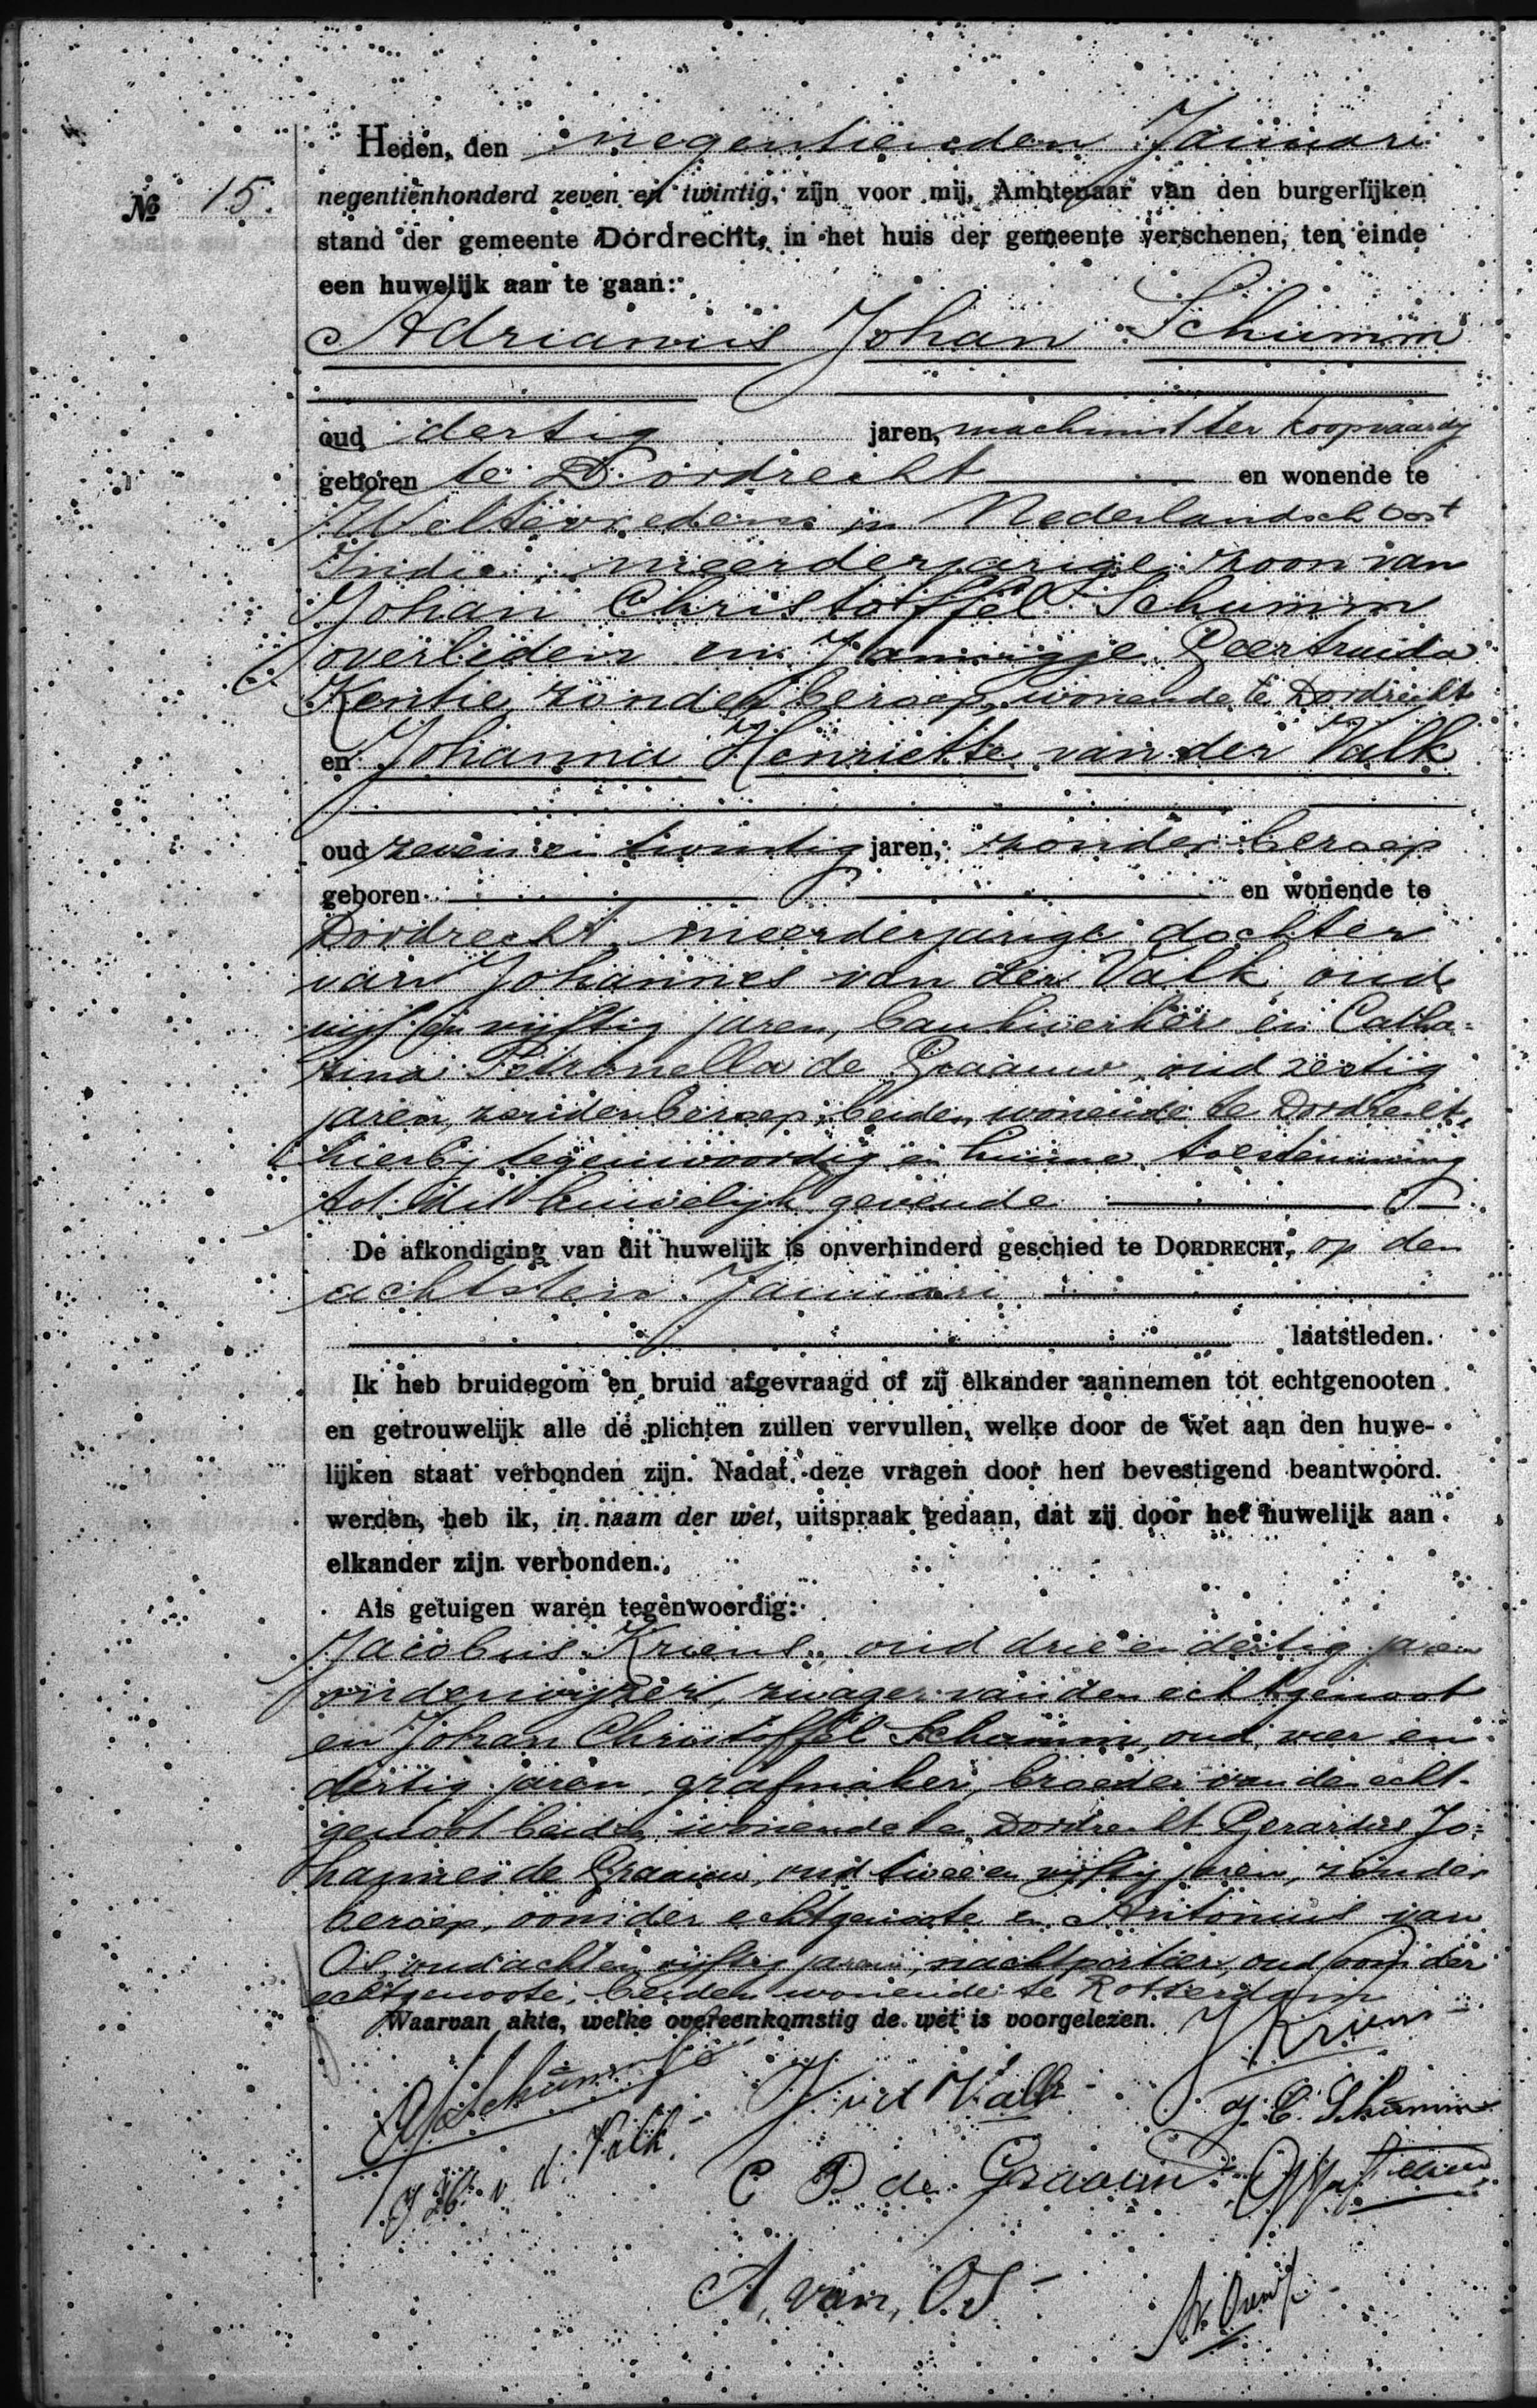 Heden, den negentienden Januari
№ 15.
negentienhonderd zeven en twintig, zijn voor mij, Ambtenaar van den burgerlijken
stand der gemeente Dordrecht, in het huis der gemeente verschenen, ten einde
een huwelijk aan te gaan:
Adrianus Johan Schumm
oud dertig jaren, machinist ter koopvaardij
geboren te Dordrecht en wonende te
Weltevreden in Nederlandsch Oost
Indië, meerderjarige zoon van
Johan Christoffel Schumm
overleden en Jannigje Geertruida
Kentie, zonder beroep, wonende te Dordrecht
en Johanna Henriette van der Valk
oud zeven en twintig jaren, zonder beroep
geboren en wonende te
Dordrecht, meerderjarige dochter
van Johannes van der Valk, oud
vijf en vijftig jaren, bankwerker en Catha-
rina Petronella de Graauw, oud zestig
jaren, zonder beroep, beiden wonende te Dordrecht,
hierbij tegenwoordig en hunne toestemming
tot dit huwelijk gevende
De afkondiging van dit huwelijk is onverhinderd geschied te Dordrecht, op den
achtsten Januari
laatstleden.
Ik heb bruidegom en bruid afgevraagd of zij elkander aannemen tot echtgenooten
en getrouwelijk alle de plichten zullen vervullen, welke door de wet aan den huwe-
lijken staat verbonden zijn. Nadat deze vragen door hen bevestigend beantwoord
werden, heb ik, in naam der wet, uitspraak gedaan, dat zij door het huwelijk aan
elkander zijn verbonden.
Als getuigen waren tegenwoordig:
Jacobus Kriens, oud drie en dertig jaren
onderwijzer, zwager van den echtgenoot
en Johan Christoffel Schumm, oud vier en
dertig jaren, grafmaker, broeder van den echt-
genoot beiden wonende te Dordrecht Gerardus Jo-
hannes de Graauw, oud twee en vijftig jaren, zonder
beroep, oom der echtgenoote en Antonius van
Os, oud acht en vijftig jaren, nachtportier, oud oom der
echtgenoote, beiden wonende te Rotterdam
Waarvan akte, welke overeenkomstig de wet is voorgelezen.
J Kriens
AJ Schumm
J v d Valk
J. C. Schumm
J H v. d. Valk.
C P de Graauw
A. van Os